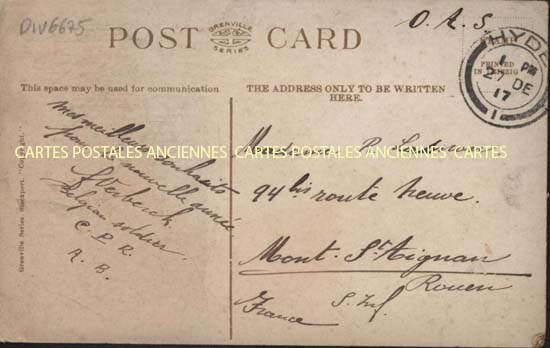 DIV6675
POST CARD
GRENVILLE
SERIES
O.A.S
HYDE
PM
27 DE
17
1
PRINTED
IN LEIPZIG
This space may be used for communication
THE ADDRESS ONLY TO BE WRITTEN
HERE.
Mes meilleurs souhaits
nouvelle année.
Belgian soldier
C. P. R.
A. B.
Madame P.
94 bis route neuve.
Mont-St-Aignan
Rouen
S. Inf.
France
CARTES POSTALES ANCIENNES CARTES POSTALES ANCIENNES CARTES
Grenville Series Stockport.